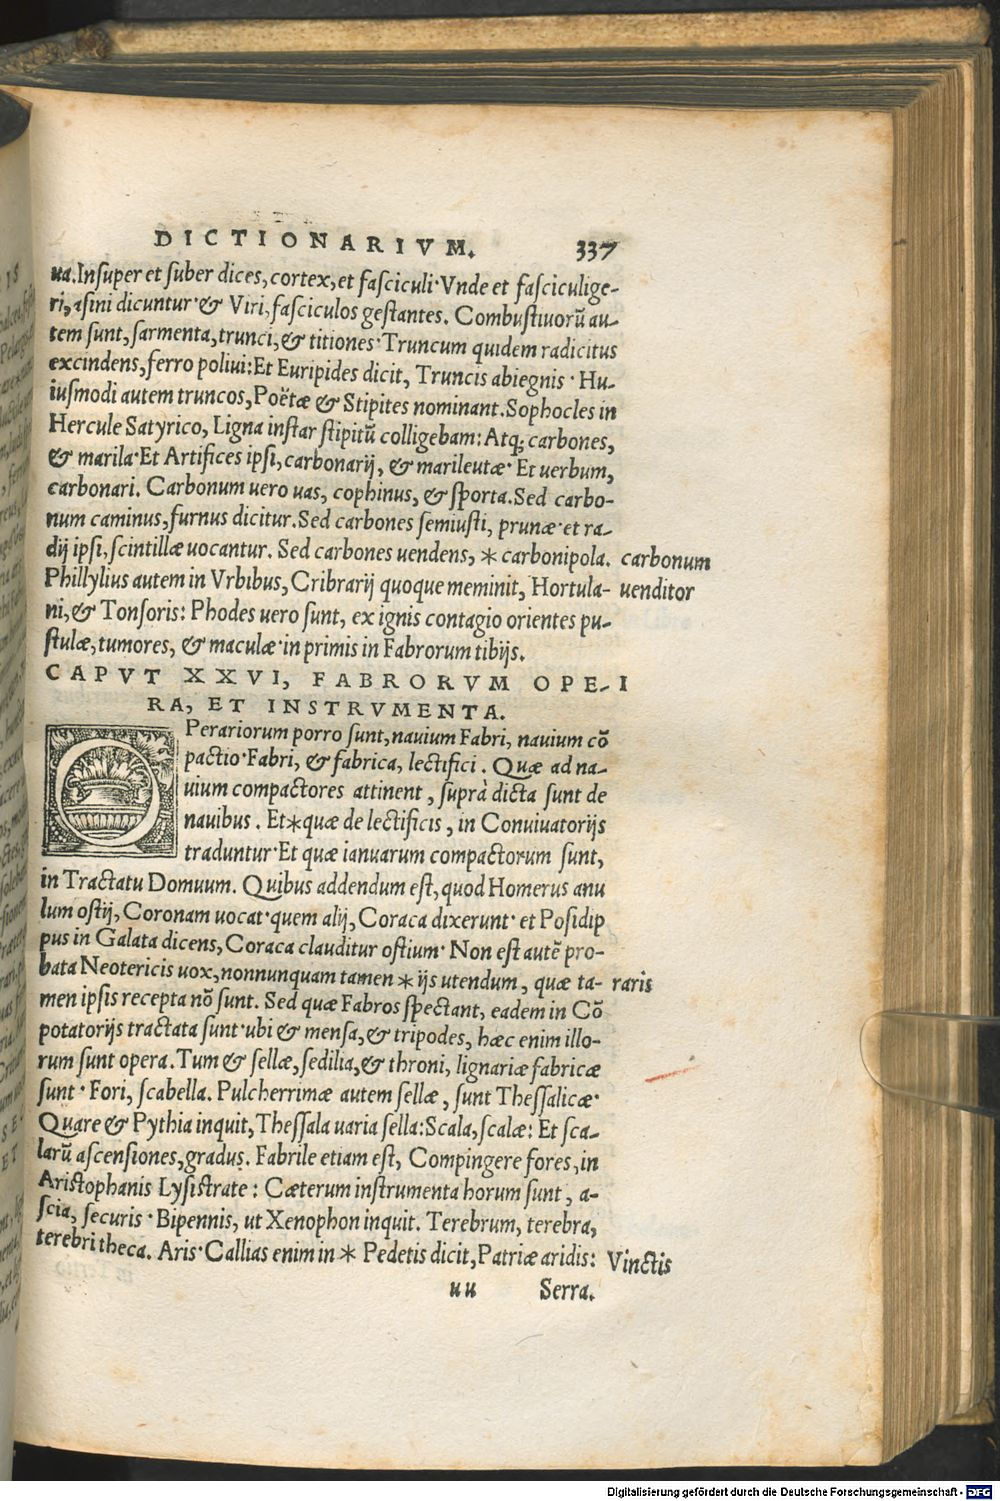 DICTIONARIVM. 337
ua. Insuper et suber dices, cortex, et fasciculi· Vnde et fasciculige-
ri, asini dicuntur· & Viri, fasciculos gestantes. Combustiuorũ au-
tem sunt, sarmenta, trunci, & titiones· Truncum quidem radicitus
excindens, ferro poliui: Et Euripides dicit, Truncis abiegnis· Hu-
iusmodi autem truncos, Poëtæ & Stipites nominant. Sophocles in
Hercule Satyrico, Ligna instar stipitũ colligebam: Atq; carbones,
& marila· Et Artifices ipsi, carbonarij, & marileutæ· Et uerbum,
carbonari. Carbonum uero uas, cophinus, & sporta. Sed carbo-
num caminus, furnus dicitur. Sed carbones semiusti, prunæ· et ra-
dij ipsi, scintillæ uocantur. Sed carbones uendens, * carbonipola. carbonum
Phillylius autem in Vrbibus, Cribrarij quoque meminit, Hortula- uenditor
ni, & Tonsoris: Phodes uero sunt, ex ignis contagio orientes pu-
stulæ, tumores, & maculæ· in primis in Fabrorum tibijs.
CAPVT XXVI, FABRORVM OPE- I
RA, ET INSTRVMENTA.
OPerariorum porro sunt, nauium Fabri, nauium cõ
pactio· Fabri, & fabrica, lectifici. Quæ ad na-
uium compactores attinent, suprà dicta sunt de
nauibus. Et * quæ de lectificis, in Conuiuatorijs
traduntur· Et quæ ianuarum compactorum sunt,
in Tractatu Domuum. Quibus addendum est, quod Homerus anu
lum ostij, Coronam uocat· quem alij, Coraca dixerunt· et Posidip
pus in Galata dicens, Coraca clauditur ostium· Non est autẽ pro-
bata Neotericis uox, nonnunquam tamen * ijs utendum, quæ ta- raris
men ipsis recepta nõ sunt. Sed quæ Fabros spectant, eadem in Cõ
potatorijs tractata sunt· ubi & mensa, & tripodes, hæc enim illo-
rum sunt opera. Tum & sellæ, sedilia, & throni, lignariæ fabricæ
sunt· Fori, scabella. Pulcherrimæ autem sellæ, sunt Thessalicæ·
Quare & Pythia inquit, Thessala uaria sella: Scala, scalæ: Et sca-
larũ ascensiones, gradus. Fabrile etiam est, Compingere fores, in
Aristophanis Lysistrate: Cæterum instrumenta horum sunt, a-
scia, securis· Bipennis, ut Xenophon inquit. Terebrum, terebra,
terebri theca. Aris· Callias enim in * Pedetis dicit, Patriæ aridis: Vinctis
uu Serra.
Digitalisierung gefördert durch die Deutsche Forschungsgemeinschaft - DFG